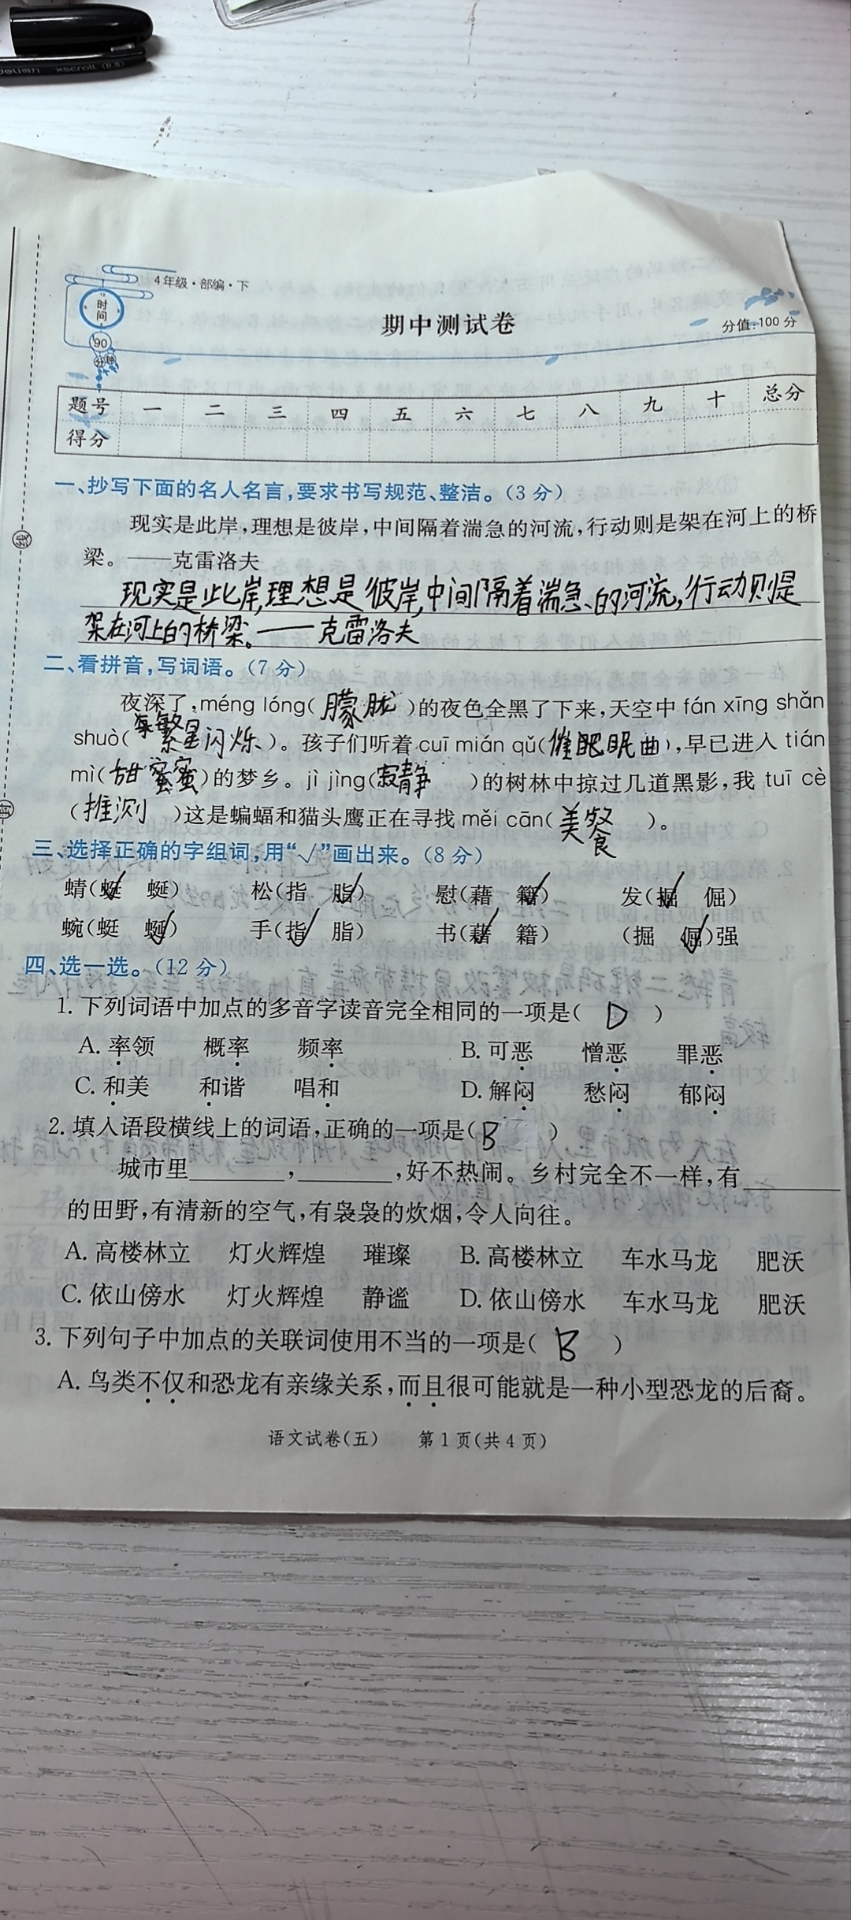 4年级·部编·下
时间
90
分钟
期中测试卷
分值:100分
题号 一 二 三 四 五 六 七 八 九 十 总分
得分
线
封
一、抄写下面的名人名言,要求书写规范、整洁。(3分)
现实是此岸,理想是彼岸,中间隔着湍急的河流,行动则是架在河上的桥
梁。——克雷洛夫
现实是此岸,理想是彼岸,中间隔着湍急的河流,行动则是
架在河上的桥梁。——克雷洛夫
二、看拼音,写词语。(7分)
夜深了,méng lóng(朦胧)的夜色全黑了下来,天空中 fán xīng shǎn
shuò(繁星闪烁)。孩子们听着 cuī mián qǔ(催眠曲),早已进入 tián
mì(甜蜜)的梦乡。jì jìng(寂静)的树林中掠过几道黑影,我 tuī cè
(推测)这是蝙蝠和猫头鹰正在寻找 měi cān(美餐)。
三、选择正确的字组词,用“√”画出来。(8分)
蜻(蜓√ 蜒) 松(指 脂√) 慰(藉 籍√) 发(掘√ 倔)
蜿(蜓 蜒√) 手(指√ 脂) 书(藉√ 籍) (掘 倔√)强
四、选一选。(12分)
1. 下列词语中加点的多音字读音完全相同的一项是( D )
A. 率领 概率 频率 B. 可恶 憎恶 罪恶
C. 和美 和谐 唱和 D. 解闷 愁闷 郁闷
2. 填入语段横线上的词语,正确的一项是( B )
城市里________,________,好不热闹。乡村完全不一样,有________
的田野,有清新的空气,有袅袅的炊烟,令人向往。
A. 高楼林立 灯火辉煌 璀璨 B. 高楼林立 车水马龙 肥沃
C. 依山傍水 灯火辉煌 静谧 D. 依山傍水 车水马龙 肥沃
3. 下列句子中加点的关联词使用不当的一项是( B )
A. 鸟类不仅和恐龙有亲缘关系,而且很可能就是一种小型恐龙的后裔。
语文试卷(五) 第1页(共4页)